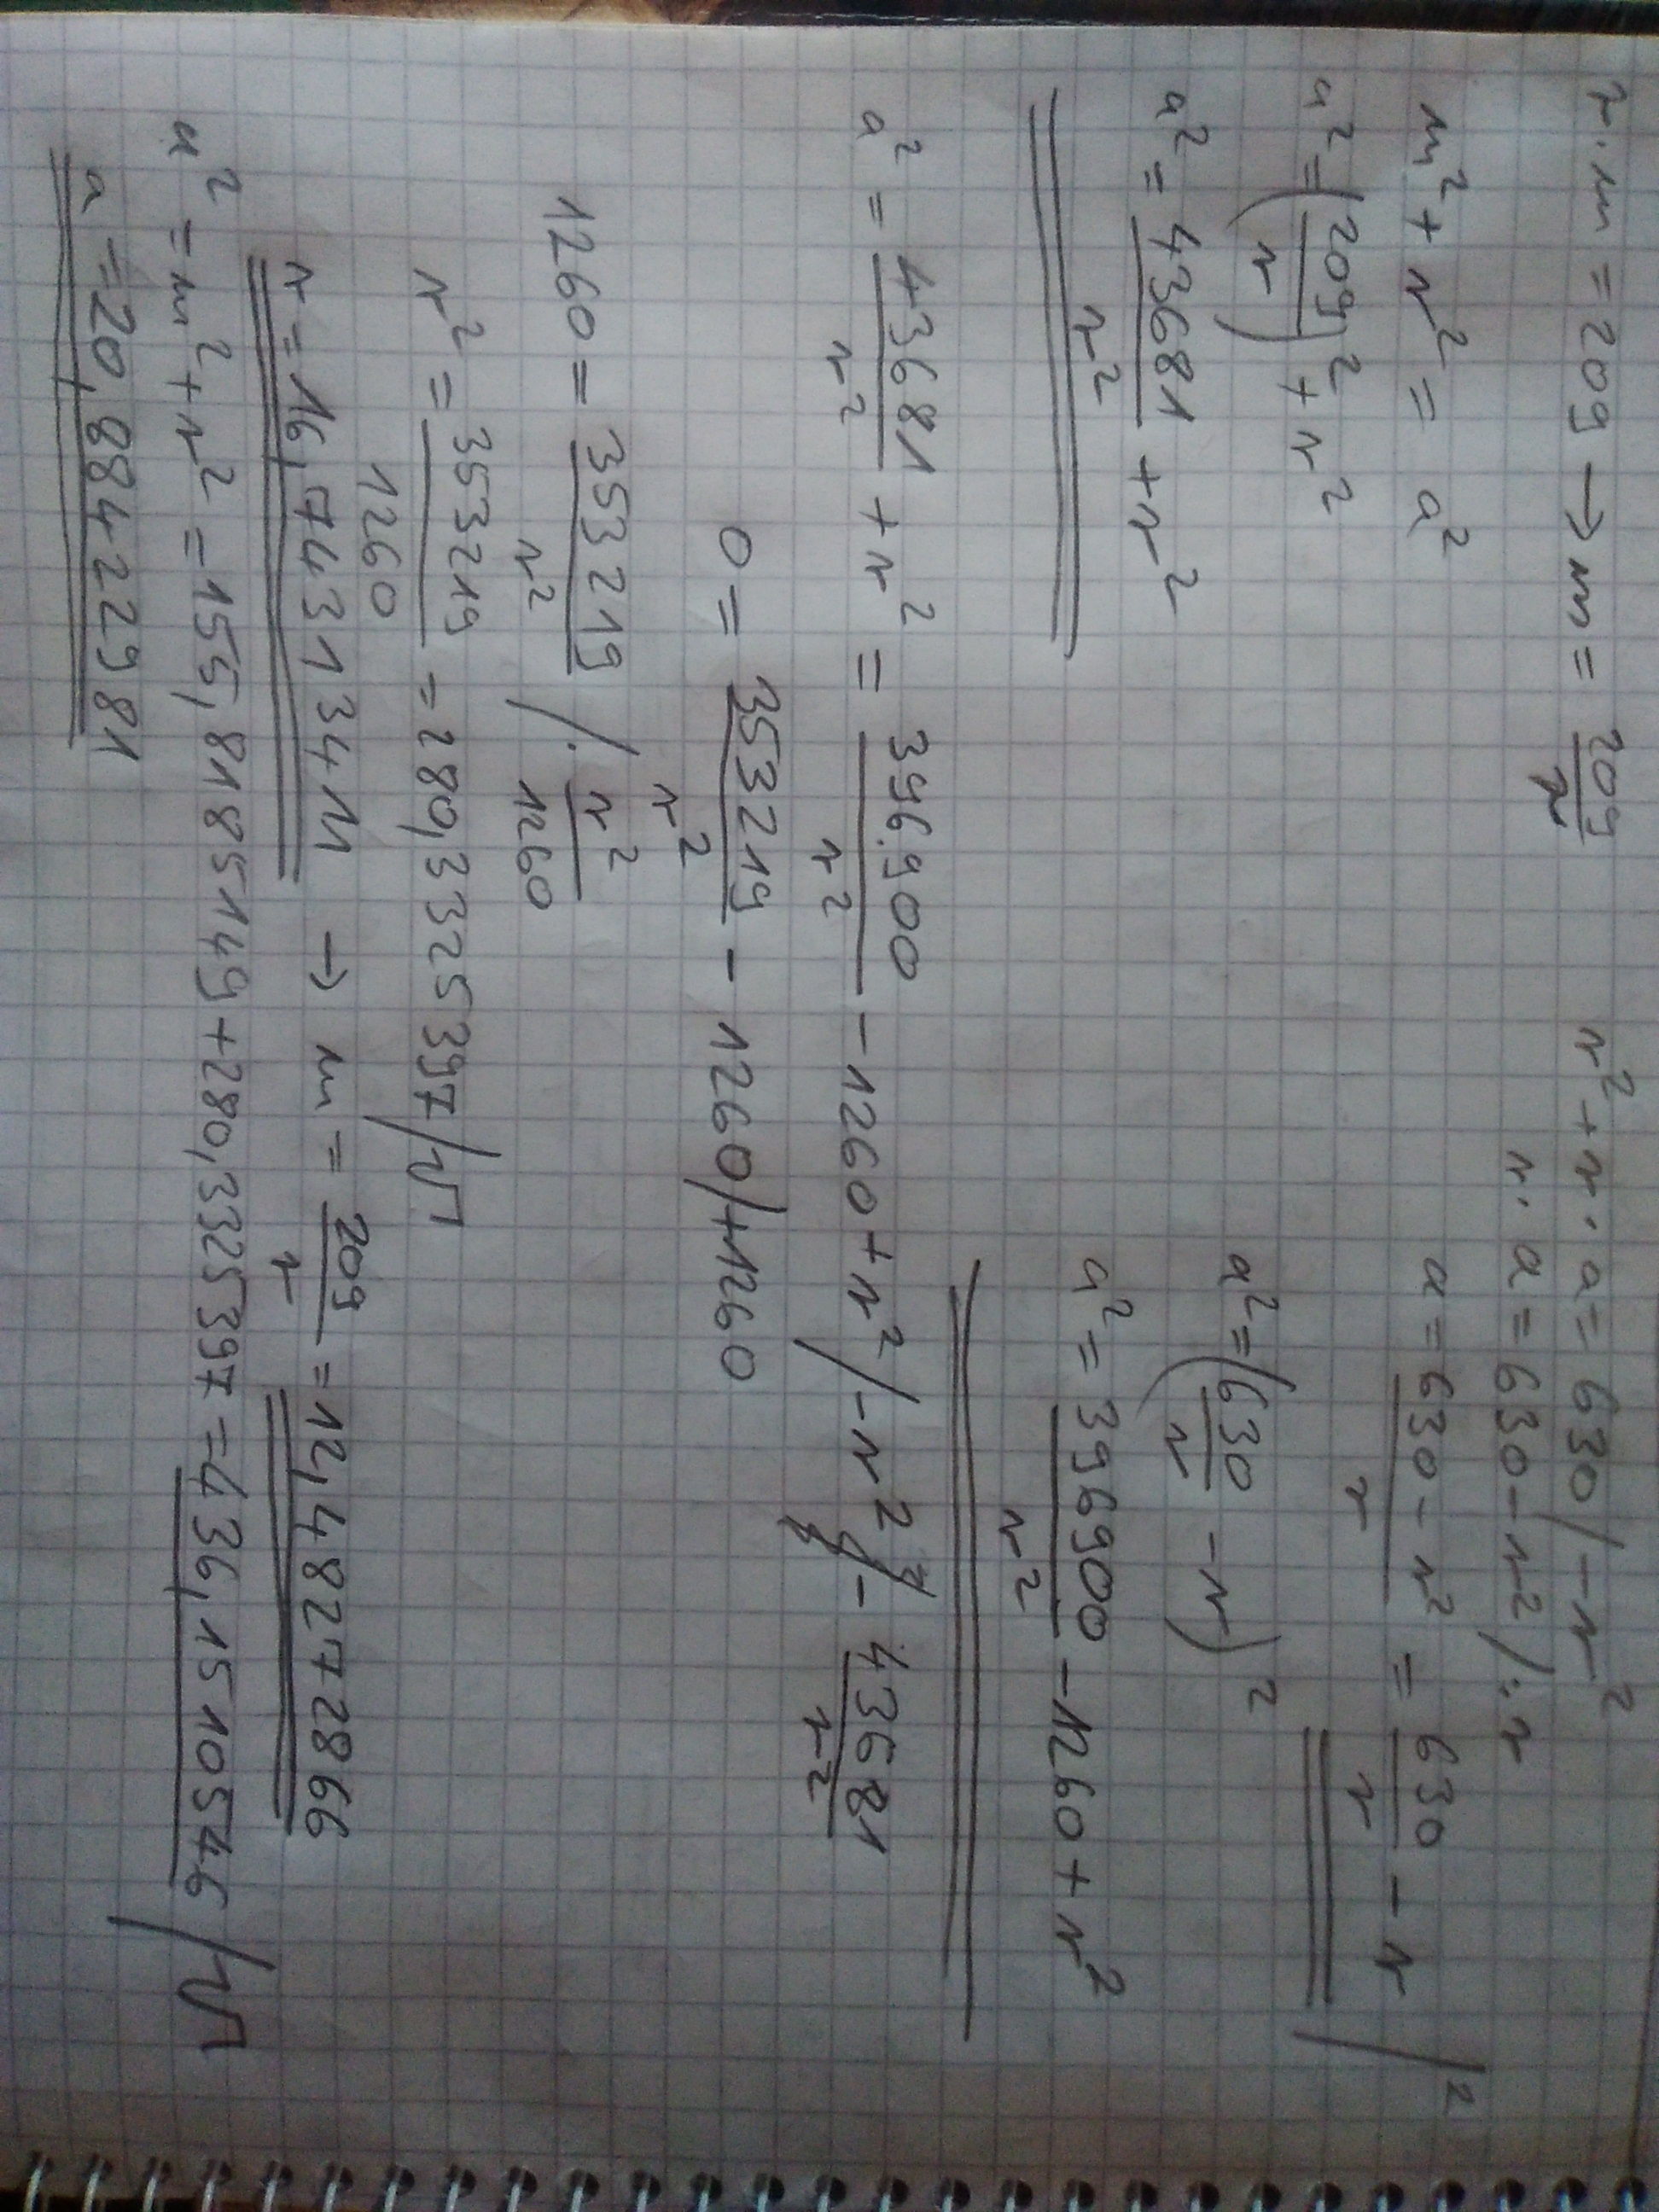 r · m = 209 → m = 209/r
r² + r · a = 630 / -r²
m² + r² = a²
r · a = 630 - r² / : r
a² = (209/r)² + r²
a = (630 - r²)/r = 630/r - r /²
a² = 43681/r² + r²
a² = (630/r - r)²
a² = 396900/r² - 1260 + r²
a² = 43681/r² + r² = 396.900/r² - 1260 + r² / -r² / - 43681/r²
0 = 353219/r² - 1260 / +1260
1260 = 353219/r² / · r²/1260
r² = 353219/1260 = 280,3325397 / √
r = 16,74313411 → m = 209/r = 12,48272866
a² = m² + r² = 155,8185149 + 280,3325397 = 436,1510546 / √
a = 20,88422981